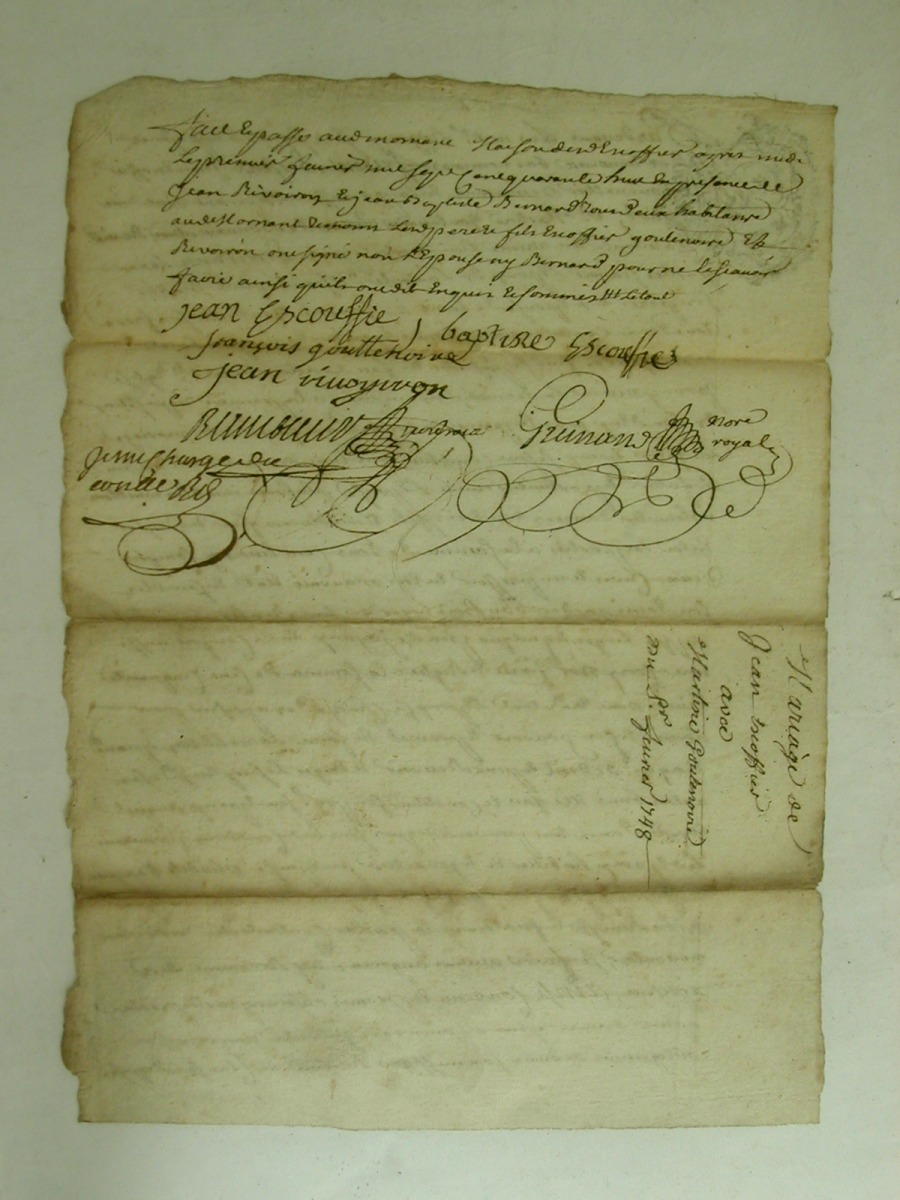 fait Et passé aud mornant Maison desd Escoffier apres midi
Le premier fevrier mil sept Cent quarante huit En presence de
Jean Rivoiron Et jean Baptiste Bernard tous deux habitants
aud Mornant temoins Lesd pere Et fils Escoffier goutenoire Et
Revoiron ont signé non l'Epouse ny Bernard pour ne le scavoir
faire ainsi qu'ils ont dit Enquis Et sommés Le tout
jean Escouffie baptiste Escouffie
françois gouttenoire
jean rivoyron
Guinand Nore
royal
Mariage de
Jean Escoffier
avec
Martine Goutenoire
Du pr fevrier 1748